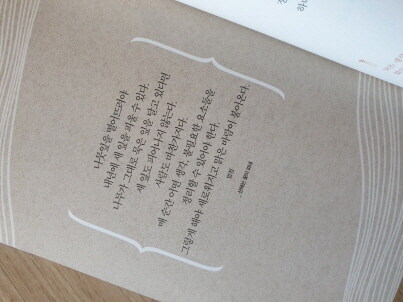 나뭇잎을 떨어뜨려야
내년에 새 잎을 피울 수 있다.
나무가 그대로 묵은 잎을 달고 있다면
새 잎도 피어나지 않는다.
사람도 마찬가지다.
매 순간 어떤 생각, 불필요한 요소들을
정리할 수 있어야 한다.
그렇게 해야 새로워지고 맑은 바람이 불어온다.
법정